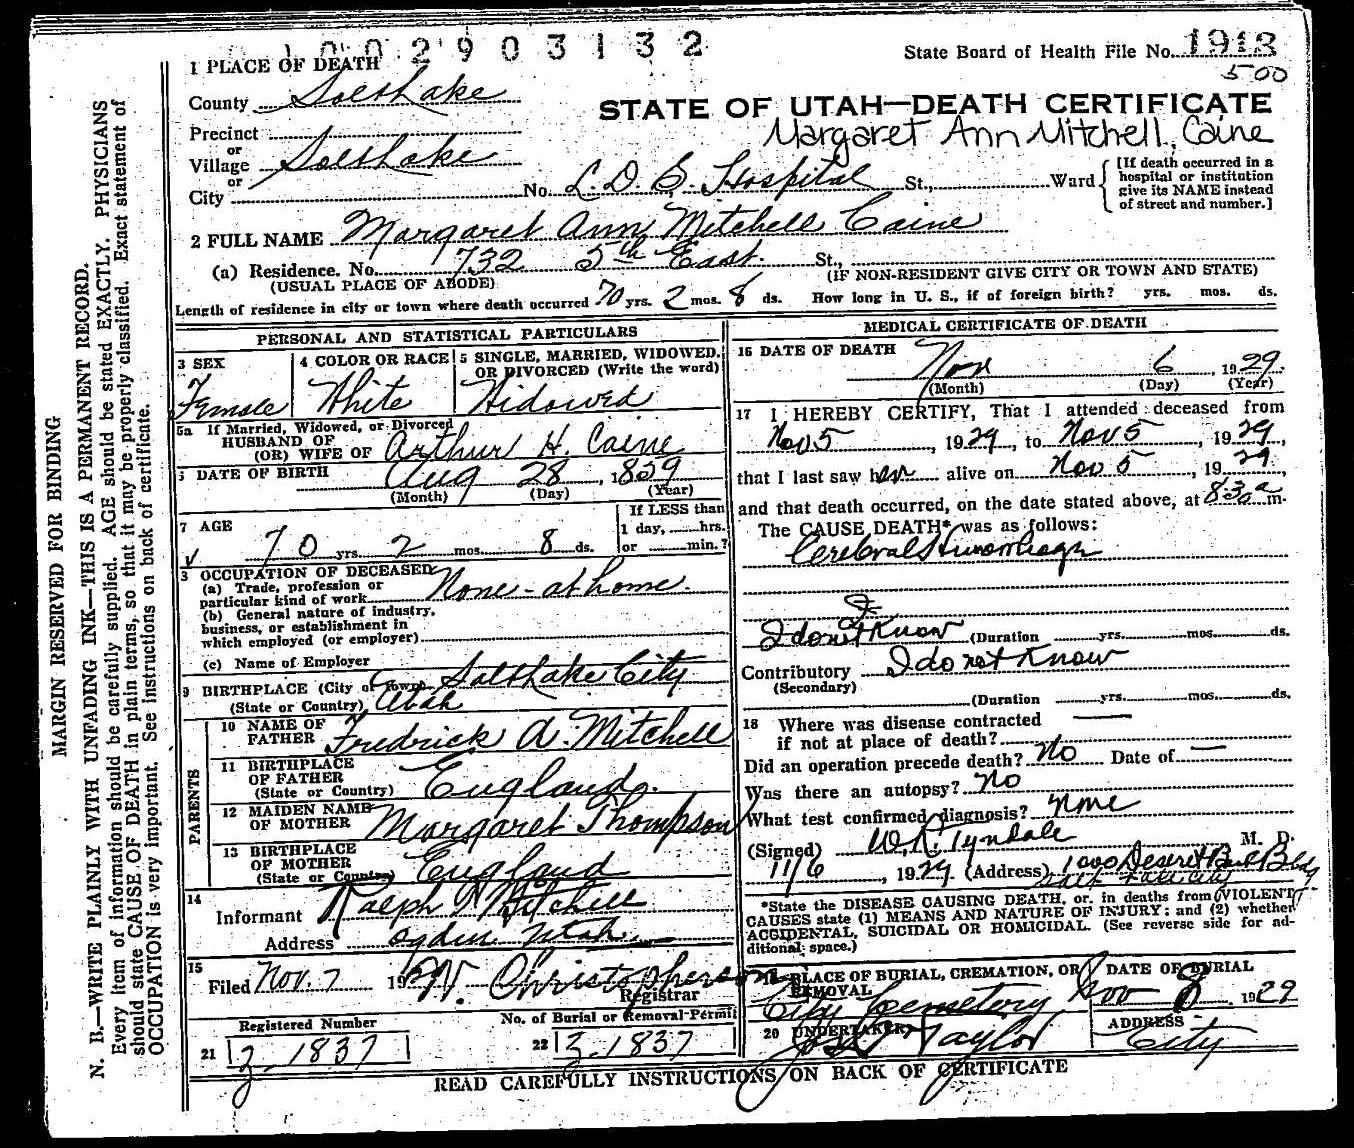 1002903132
State Board of Health File No. 1913
500
1 PLACE OF DEATH
County Salt Lake
STATE OF UTAH—DEATH CERTIFICATE
Margaret Ann Mitchell Caine
Precinct
or
Village Salt Lake
or
City
No. L.D.S. Hospital St., Ward
[If death occurred in a
hospital or institution
give its NAME instead
of street and number.]
2 FULL NAME Margaret Ann Mitchell Caine
(a) Residence. No. 732 5th East. St.,
(USUAL PLACE OF ABODE)
(IF NON-RESIDENT GIVE CITY OR TOWN AND STATE)
Length of residence in city or town where death occurred 70 yrs. 2 mos. 8 ds. How long in U. S., if of foreign birth? yrs. mos. ds.
PERSONAL AND STATISTICAL PARTICULARS
3 SEX
Female
4 COLOR OR RACE
White
5 SINGLE, MARRIED, WIDOWED,
OR DIVORCED (Write the word)
Widowed
5a If Married, Widowed, or Divorced
HUSBAND OF
(OR) WIFE OF Arthur H. Caine
DATE OF BIRTH Aug 28, 1859
(Month) (Day) (Year)
7 AGE
70 yrs. 2 mos. 8 ds.
If LESS than
1 day, hrs.
or min.?
OCCUPATION OF DECEASED
(a) Trade, profession or
particular kind of work None - at home.
(b) General nature of industry,
business, or establishment in
which employed (or employer)
(c) Name of Employer
9 BIRTHPLACE (City or Town) Salt Lake City
(State or Country) Utah
PARENTS
10 NAME OF
FATHER Fredrick A. Mitchell
11 BIRTHPLACE
OF FATHER
(State or Country) England.
12 MAIDEN NAME
OF MOTHER Margaret Thompson
13 BIRTHPLACE
OF MOTHER
(State or Country) England
14
Informant Ralph Mitchell
Address Ogden Utah
15
Filed Nov. 7 1929 W. Christopherson
Registrar
Registered Number
21 3-1837
No. of Burial or Removal Permit
22 3-1837
MEDICAL CERTIFICATE OF DEATH
16 DATE OF DEATH
Nov 6, 1929.
(Month) (Day) (Year)
17 I HEREBY CERTIFY, That I attended deceased from
Nov 5, 1929, to Nov 5, 1929,
that I last saw her alive on Nov 5, 1929,
and that death occurred, on the date stated above, at 8:30 a m.
The CAUSE DEATH* was as follows:
Cerebral Hemorrhage
I do not Know (Duration yrs. mos. ds.
Contributory I do not Know
(Secondary)
(Duration yrs. mos. ds.
18 Where was disease contracted
if not at place of death?
Did an operation precede death? No Date of —
Was there an autopsy? No
What test confirmed diagnosis? None
(Signed) W. R. Tyndale M. D.
11/6, 1929 (Address) 1000 Deseret Bank Bldg
Salt Lake City
*State the DISEASE CAUSING DEATH, or, in deaths from VIOLENT
CAUSES state (1) MEANS AND NATURE OF INJURY; and (2) whether
ACCIDENTAL, SUICIDAL OR HOMICIDAL. (See reverse side for ad-
ditional space.)
19 PLACE OF BURIAL, CREMATION, OR
REMOVAL
City Cemetery
DATE OF BURIAL
Nov 8, 1929
20 UNDERTAKER
Taylor
ADDRESS
City
READ CAREFULLY INSTRUCTIONS ON BACK OF CERTIFICATE
MARGIN RESERVED FOR BINDING
N. B.—WRITE PLAINLY WITH UNFADING INK—THIS IS A PERMANENT RECORD.
Every item of information should be carefully supplied. AGE should be stated EXACTLY. PHYSICIANS
should state CAUSE OF DEATH in plain terms, so that it may be properly classified. Exact statement of
OCCUPATION is very important. See instructions on back of certificate.